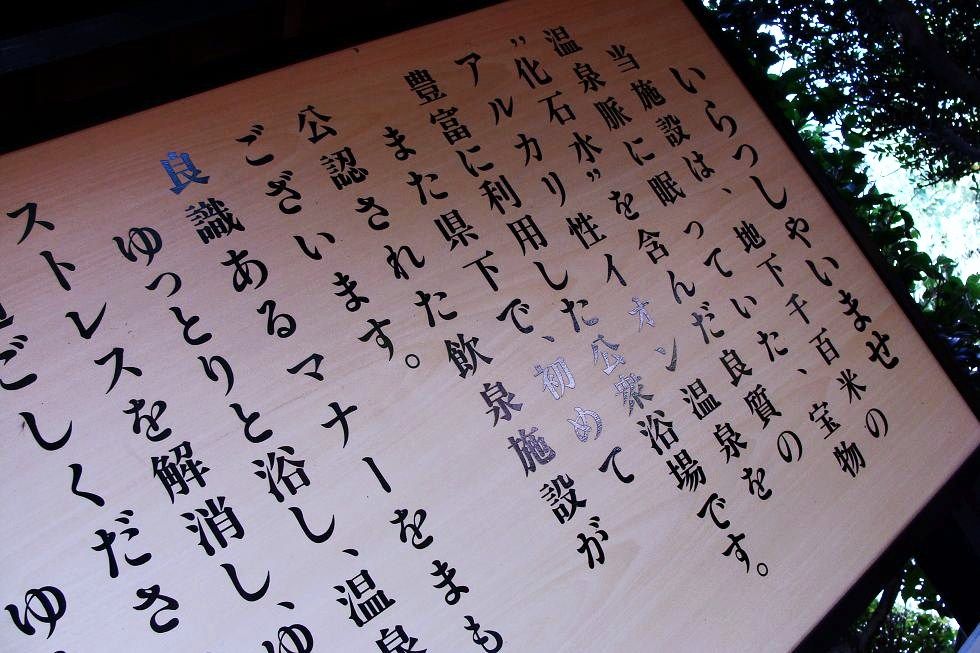 いらっしゃいませ
当施設は、地下千百米の
温泉脈に眠っていた、宝物
”化石水”を含んだ良質の
アルカリ性イオン温泉を
豊富に利用した公衆浴場です。
また県下で、初めて
公認された飲泉施設が
ございます。
良識あるマナーをまも
ゆっとりと浴し、温泉
ストレスを解消し、ゆ
ごしくださ
ゆ